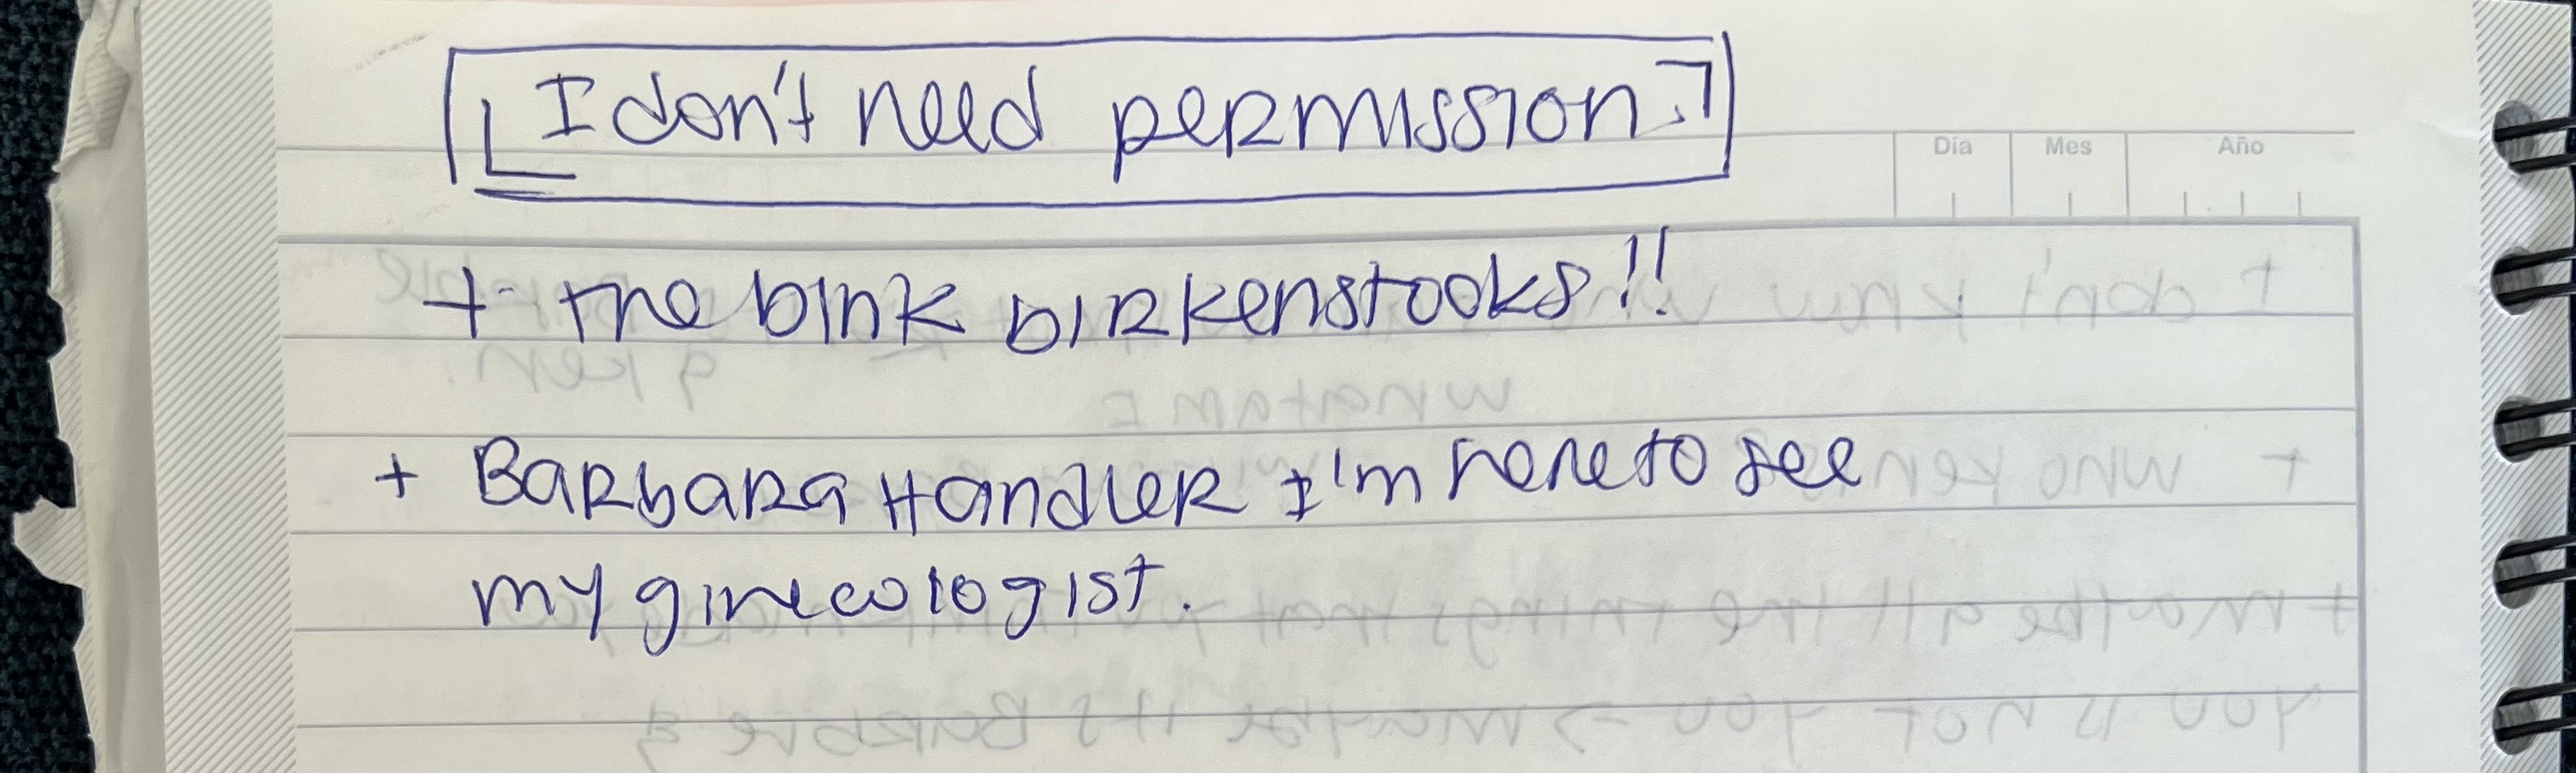 I don't need permission.
Día Mes Año
+ the bink birkenstooks!!
+ Barbara Handler I'm here to see
my ginecologist.